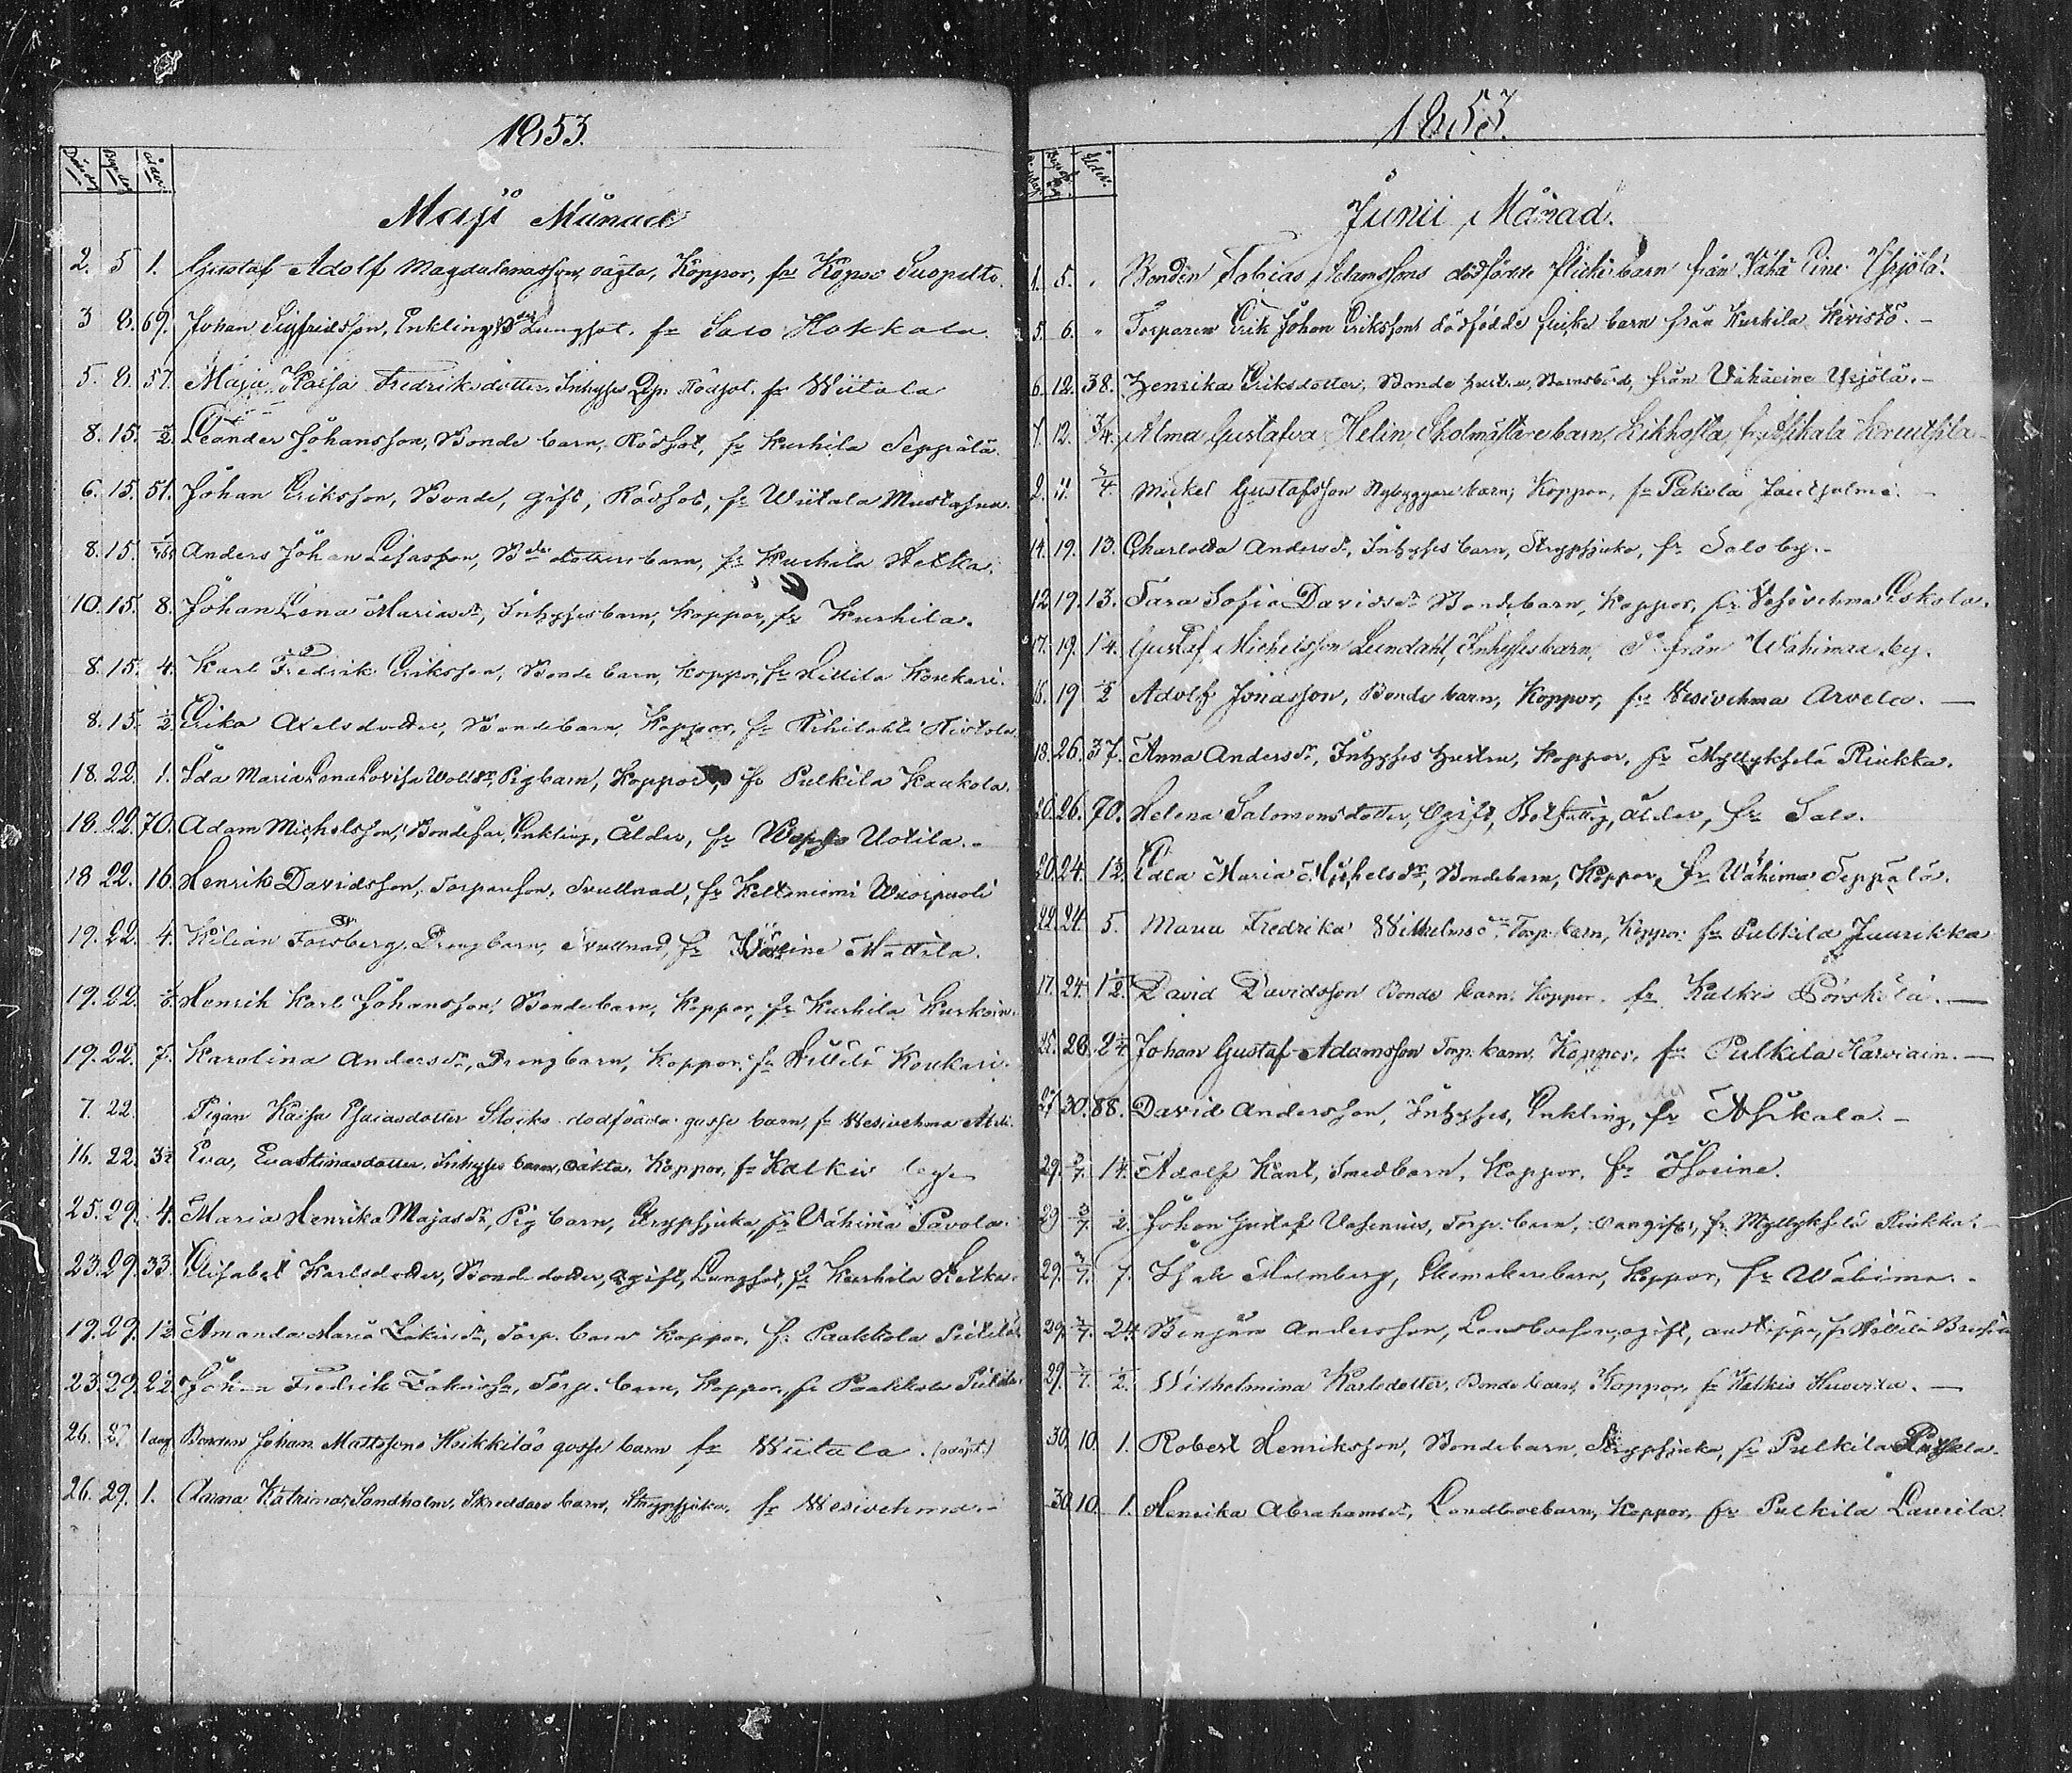 1853.
Majii Månad
2. 5 1. Gustaf Adolf Magdalenasson, oägta, Koppor, fr
3 8. 69. Johan Sigfridsson, Enkling, Lungsot. fr Salo Hokkala.
5. 8. 57. Maja Kaisa Fredriksdotter, Inhyses Rödsot. fr Wiitala
8. 15. ½. Leander Johansson, Bonde barn, Rödsot, fr Kurhila Seppälä
6. 15. 51. Johan Eriksson, Bonde, gift, Rödsot, fr Wiitala
8. 15. Anders Johan dotters barn, fr Kurhila Hetka.
10. 15. 8. Johan Lena Mariasdr, Inhyses barn, koppor, fr Kurhila.
8. 15. 4. Karl Fredrik Eriksson, Bonde barn, koppor, fr Hillilä Koukari.
8. 15. ½. Erika Axelsdotter, Bondebarn, Koppor, fr
18. 22. 1. Ida Maria Lena Lovisa Pigbarn, Koppor, fr Pulkila Kaukola.
18. 22. 70. Adam Michelsson, Enkling, Ålder, fr Uotila.
18 22. 16. Henrik Davidsson, Torpareson, Trullnad, fr Keltoniemi Wuoripuoli
19. 22. 4. Kilian Forsberg, Drengbarn, Trullnad, fr Mattila.
19. 22. Henrik Karl Johansson, Bondebarn, Koppor, fr Kurhila
19. 22. 7. Karolina Andersdr, Drengbarn, Koppor, fr Hillilä Koukari.
7. 22. Pigan Kaisa Esaiasdotter dödfödda gosse barn, fr Wesivehma
16. 22. 3½ Eva, Eva Stinasdotter, Inhyses barn, oäkta, Koppor, fr Kalkis by
25. 29. 4. Maria Henrika Majasdr, Pig barn, Strypsjuka, fr Vähimä Pavola.
23. 29. 33. Elisabet Karlsdotter, Bond dotter, ogift, Lungsot, fr Kurhila Hetka.
19. 29. 1½ Amanda Maria Torp. barn Koppor, fr Paakkola
23. 29. 2½. Johan Fredrik Torp. barn, Koppor, fr Paakkola
26. 27 1 dag Bonden Johan Mattssons Heikkiläs gosse barn fr Wiitala. (odöpt.)
26. 29. 1. Anna Katrina Sandholm, Skreddare barn, Strypsjuka, fr Wesivehma.
1853.
Junii Månad.
1. 5. " Bonden Tobias Adamssons dödfödda flicke barn från Vähä Eine Yrjölä.
5. 6. " Torparen Erik Johan Erikssons dödfödde flicke barn från Kurhila Kivistö.
6. 12. 38. Henrika Eriksdotter, Bonde hustru, Barnsbörd, från Vähäeine Yrjölä.
7. 12. ¾. Alma Gustafva Helin, Skolmästare barn, Kikhosta, fr Asikala
2. 11. Mickel Gustafsson Nybyggare barn, Koppor, fr Pakola
14. 19. 13. Charlotta Andersdr, Inhyses barn, Strypsjuka, fr Salo by.
12. 19. 13. Sara Sofia Davidsdr Bondebarn, Koppor, fr Vesivehma Eskola.
17. 19. 14. Gustaf Michelsson Lundahl, Inhysesbarn, Do från Wähimaa by.
16. 19 ½ Adolf Jonasson, Bonde barn, Koppor, fr Vesivehma Arvela.
18. 26. 37. Anna Andersdr, Inhyses hustru, Koppor, fr Myllykselä Riukka.
20. 26. 70. Helena Salomonsdotter, Ogift, Rotfattig, ålder, fr Salo.
20. 24. 12. Maria Michelsdr, Bondebarn, Koppor, fr Wähimä Seppälä.
22. 24. 5. Maria Fredrika Wilhelmsdr Torp. barn, Koppor fr Pulkila Juurikka
17. 24. 1½. David Davidsson Bonde barn, Koppor. fr Kalkis
25. 26. 2¼. Johan Gustaf Adamsson Torp. barn, Koppor, fr Pulkila
27 30. 88. David Andersson, Inhyses, Enkling, fr Asikala.
29. 3/7. 14. Adolf Kant, Smedbarn, Koppor, fr
29 3/7. ½. Johan Gustaf Vasenius, Torp. barn, fr Myllykselä Riukka.
29. 3/7. 7. Isak Malmberg, barn, Koppor, fr Wähimä.
29. 3/7. 24. Benjam Andersson, ogift, fr Hillilä
29. 3/7. ½. Wilhelmina Karlsdotter, Bonde barn, Koppor, fr Kalkis Huovila.
30. 10. 1. Robert Henriksson, Bondebarn, Strypsjuka, fr Pulkila
30. 10. 1. Henrika Abrahamsdr, Landboebarn, Koppor, fr Pulkila Laurila.